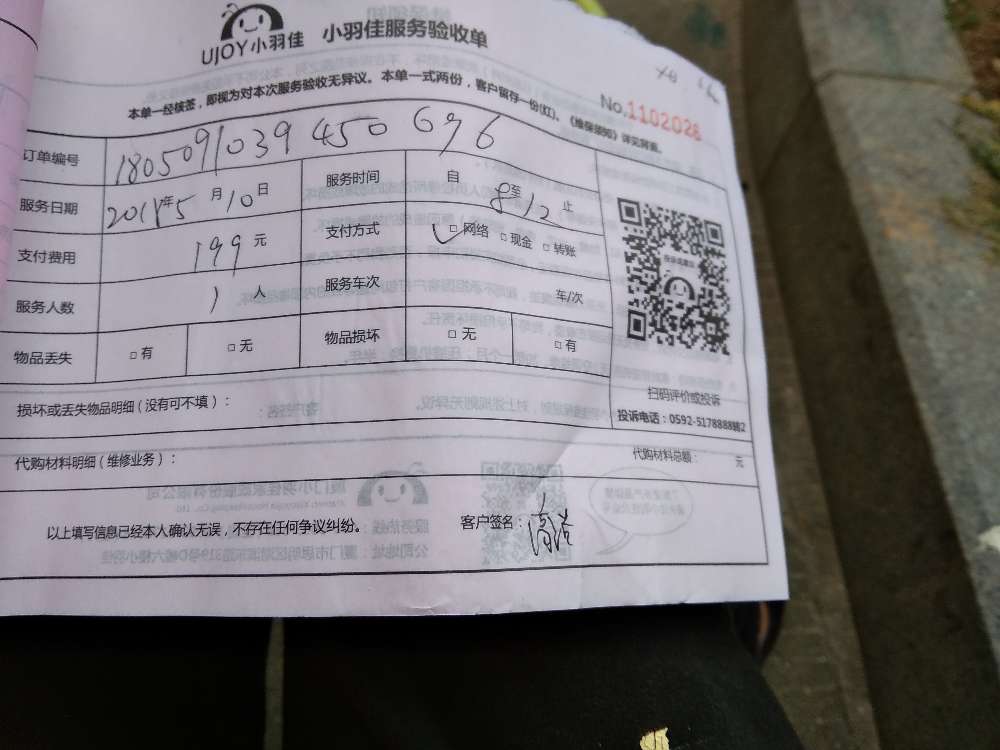 UJOY小羽佳 小羽佳服务验收单
本单一经核签，即视为对本次服务验收无异议。本单一式两份，客户留存一份(红)、《维保须知》详见背面。
No.1102028
订单编号 180509103945 0696
服务日期 2018年5月10日 服务时间 自8至12止
支付费用 199元 支付方式 □网络 □现金 □转账
服务人数 1人 服务车次 车/次
物品丢失 □有 □无 物品损坏 □无 □有
扫码评价或投诉
投诉电话：0592-5178888转2
损坏或丢失物品明细（没有可不填）：
代购材料明细（维修业务）： 代购材料总额： 元
以上填写信息已经本人确认无误，不存在任何争议纠纷。 客户签名：